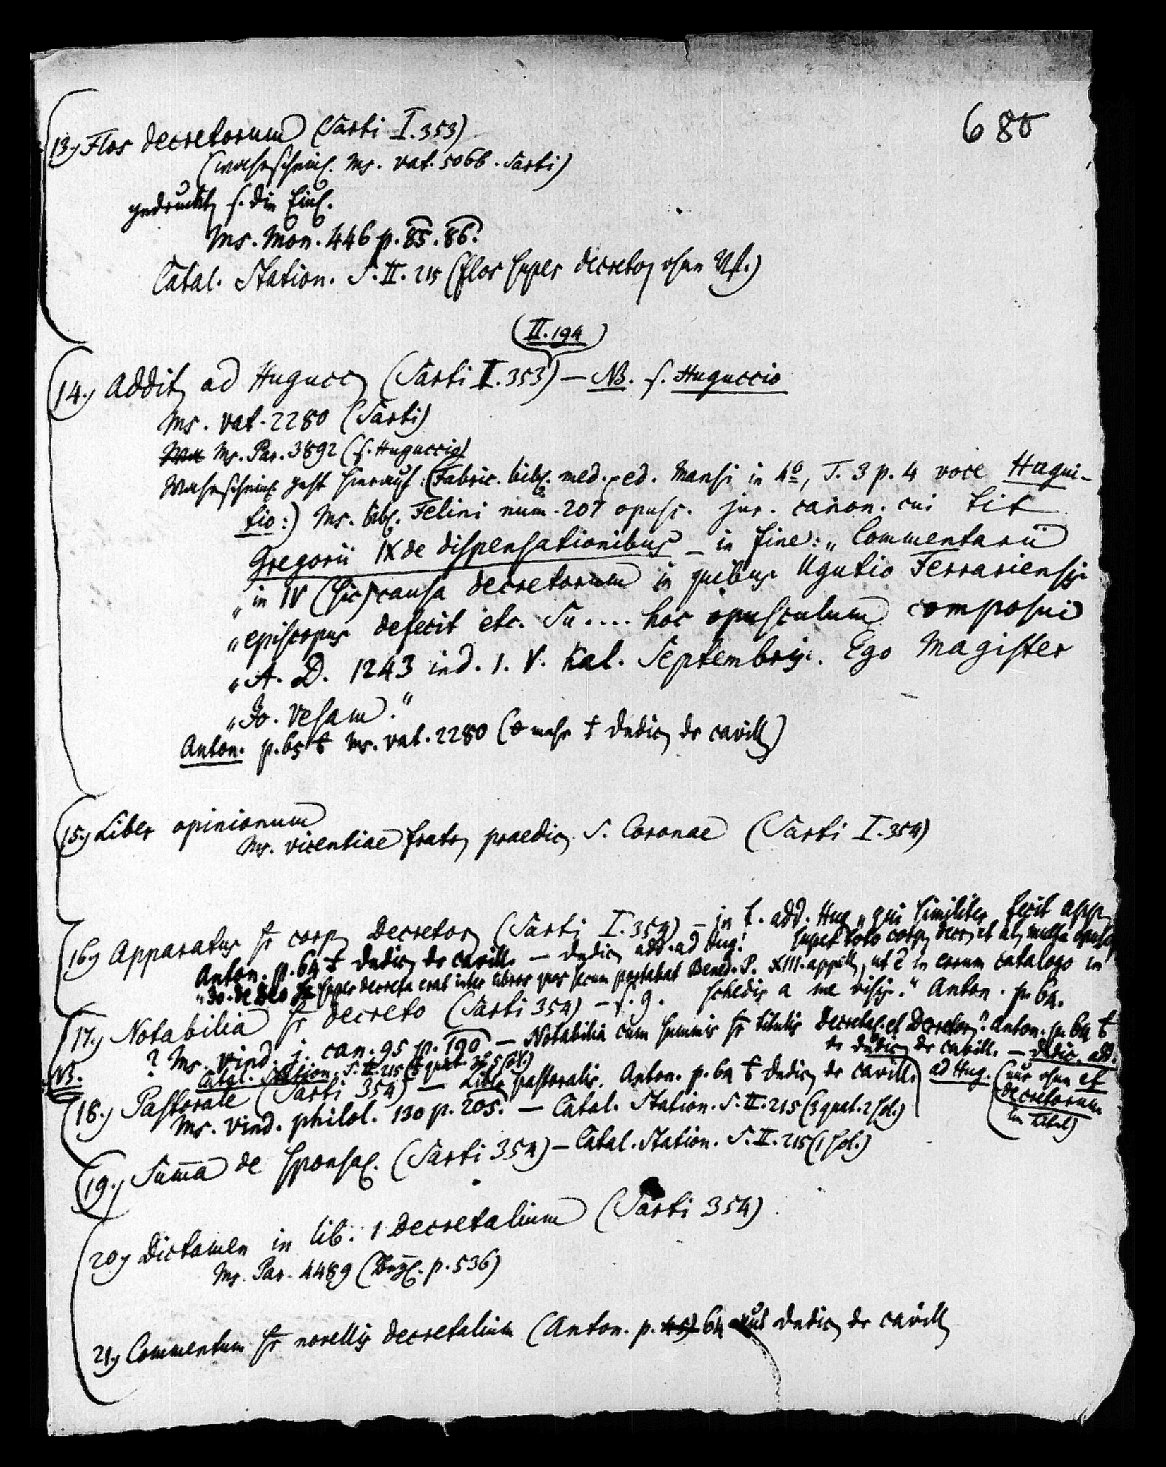 680
13) Flos decretorum (Sarti I. 353)
(wahrscheinl. Ms. vat. 5066. Sarti)
gedruckt, s. die Einl.
Ms. Mon. 446 p. 85. 86.
Catal. Station. S. II. 215 (flos super decreto, ohne Vf.)
(II. 194)
14) Addit. ad Hugucc. (Sarti I. 353) — NB. s. Huguccio
Ms. vat. 2280 (Sarti)
Ms. Par. 3892 (s. Huguccio)
Wahrscheinl. geht hierauf: (Fabric. bibl. med. ed. Mansi in 4º, T. 3 p. 4 voce Hugui-
tio:) Ms. bibl. Felini num. 207 opusc. jur. canon. cui tit
Gregorii IX de dispensationibus — in fine: „Commentarii
„in IV (sic) causa decretorum in quibus Ugutio Ferrariensis
„episcopus defecit etc. Su.... hoc opusculum composui
„A. D. 1243 ind. 1. V. Kal. Septembris. Ego Magister
„Jo. Vesam."
Anton. p. 65 Ms. vat. 2280 ( mehr dedic. de cavill.)
15) Liber opinionum
Ms. vicentiae fratr. praedic. S. Coronae (Sarti I. 354)
16) Apparatus sr corp. Decretor. (Sarti I. 354) — in t. add. Hug. „qui similiter fecit app.
super toto corp. decr. et al. multa opusc.
Anton. p. 64 dedic. de cavill. — dedic. add. ad Hug.:
„Jo. de Deo super decreta erat inter libros quos secum portabat Bened. P. XIII. appell., ut in eorum catalogo in
schedis a me visis." Anton. p. 64.
17) Notabilia sr decreto (Sarti 354) — s. 9.
? Ms. vind. j. can. 95 p. 190 — Notabilia cum summis sr titulis Decretal. et Decretor.? Anton. p. 64
dedic. de cavill. — dedic. add.
ad Hug. (nur ohne et
Decretorum
im Titel)
NB. Catal. Station. S. II. 215
18) Pastorale (Sarti 354) — Liber pastoralis. Anton. p. 64 dedic. de cavill.
Ms. vind. philol. 130 p. 205. — Catal. Station. S. II. 215 (3 quat. 2 fol.)
19) Sum̅a de sponsal. (Sarti 354) — Catal. Station. S. II. 215 (1 fol.)
20) Dictamen in lib. 1 Decretalium (Sarti 354)
Ms. Par. 4489 p. 536)
21) Commentum sr novellis decretalium (Anton. p. 64 aus dedic. de cavill.